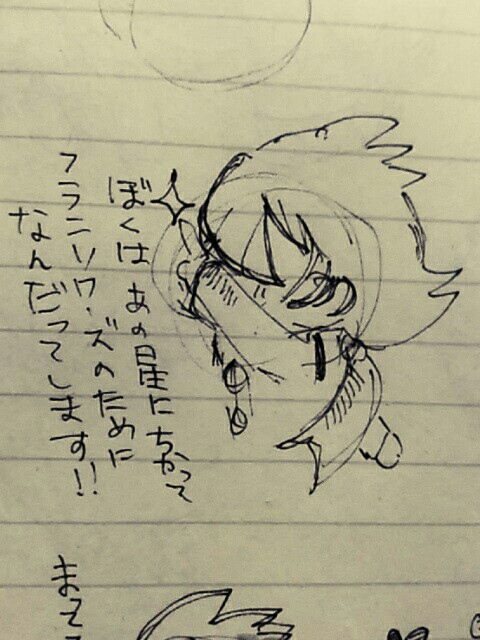 ぼくは あの星にちかって
フランソワーズのために
なんだってします!!
まてて